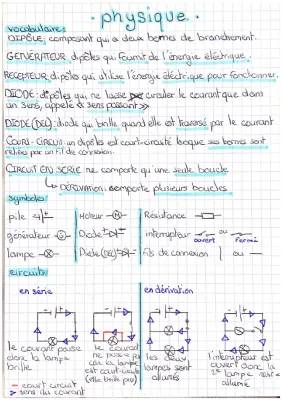 · physique ·
vocabulaire:
DIPÔLE: composant qui a deux bornes de branchement.
GÉNÉRATEUR: dipôles qui fournit de l'énergie éléctrique.
RECEPTEUR: dipôles qui utilise l'énergie éléctrique pour fonctionner.
DIODE: dipôles qui ne laisse circuler le courant que dans
un sens, appelé « sens passant »
DIODE (DEL): diode qui brille quand elle est traversé par le courant
COURT-CIRCUIT: un dipôles est court-circuité lorsque ses bornes sont
reliées par un fil de connexion.
CIRCUIT EN SERIE: ne comporte qu'une seule boucle
DÉRIVATION: comporte plusieurs boucles
symboles
pile
Moteur M
Résistance
générateur G
Diode
interrupteur ou
ouvert fermé
lampe
Diode (DEL)
Fils de connexion | ou —
circuits
en série
en dérivation
le courant passe
donc la lampe
brille
le courant
ne passe pas
car la lampe
est court-circuité
(elle brille pas)
les deux
lampes sont
allumés
l'interrupteur est
ouvert donc la
lampe est
allumé
— court circuit
sens du courant